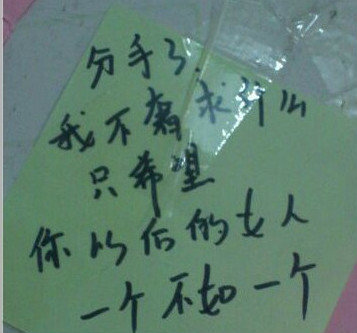 分手了.
我不奢求什么
只希望
你以后的女人
一个不如一个